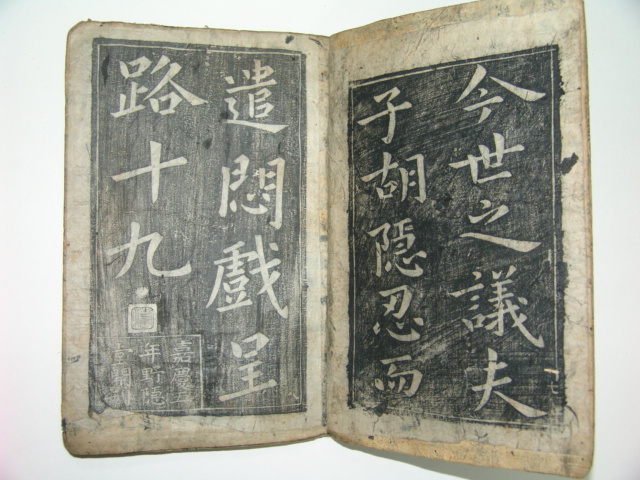 今世之議夫
子胡隱忍而
遣悶戲呈
路十九
嘉慶五
年野隱
堂開刊